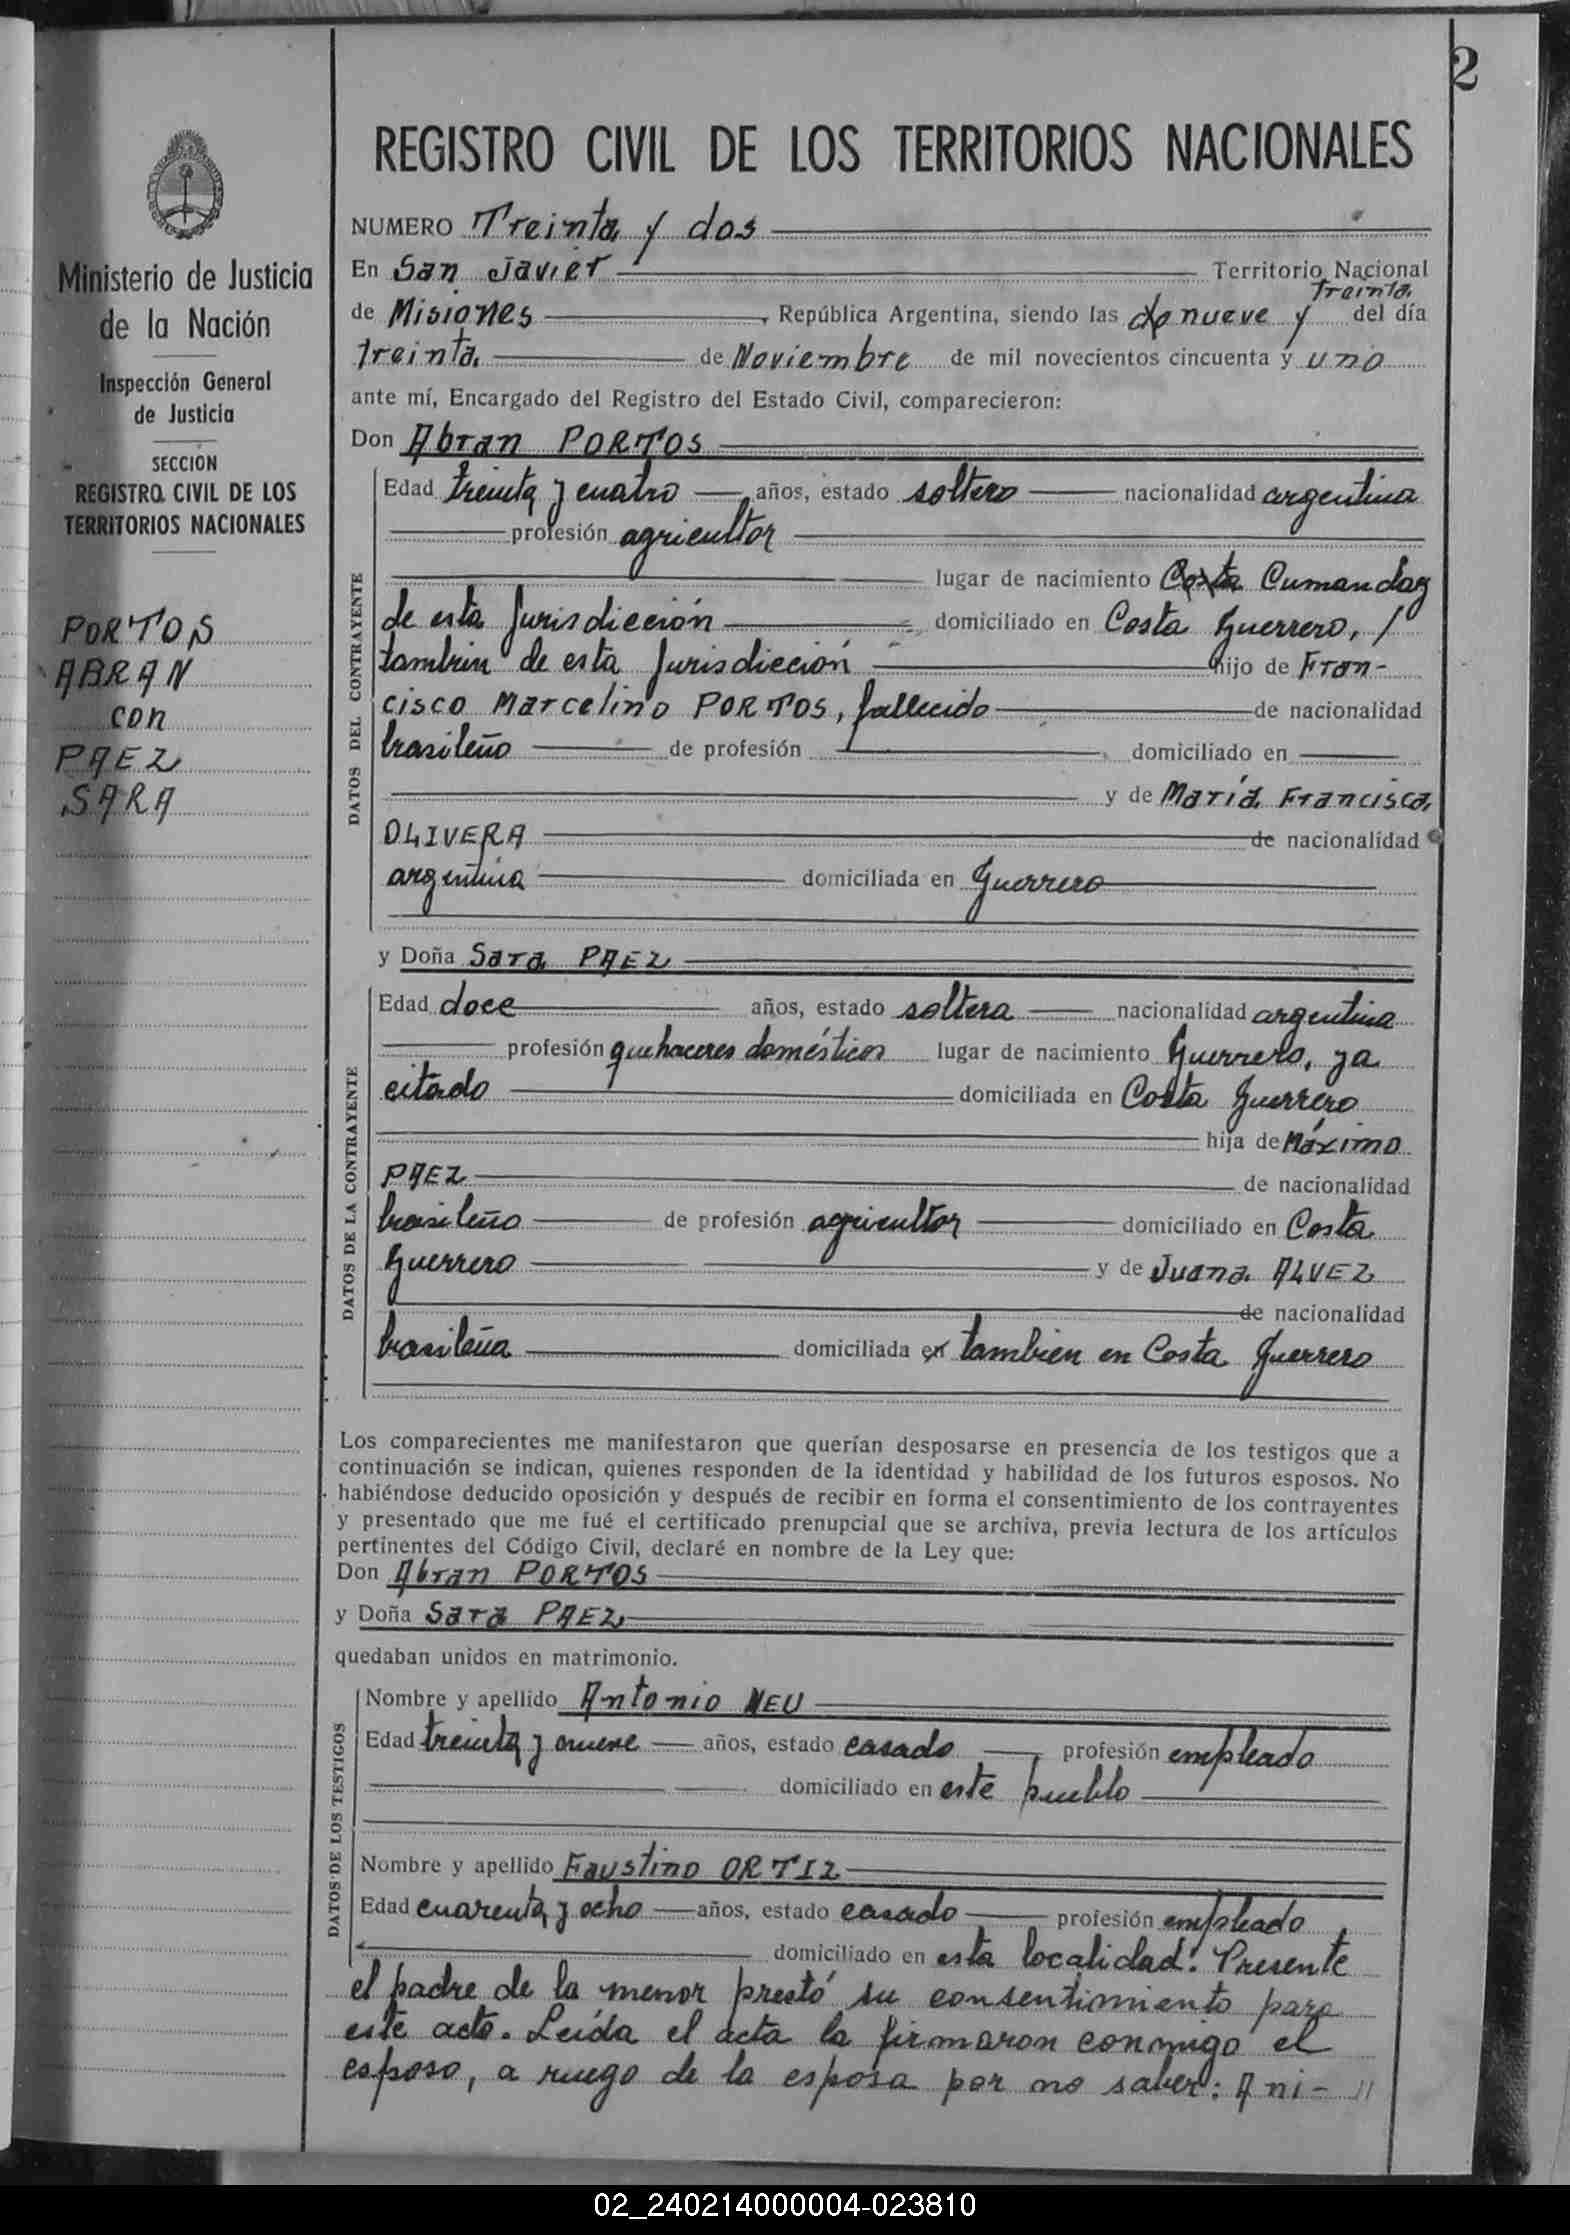 2
REGISTRO CIVIL DE LOS TERRITORIOS NACIONALES
Ministerio de Justicia
de la Nación
Inspección General
de Justicia
SECCIÓN
REGISTRO CIVIL DE LOS
TERRITORIOS NACIONALES
PORTOS
ABRAN
con
PAEZ
SARA
NUMERO Treinta y dos
En San Javier Territorio Nacional
treinta
de Misiones, República Argentina, siendo las nueve y del día
treinta de Noviembre de mil novecientos cincuenta y uno
ante mí, Encargado del Registro del Estado Civil, comparecieron:
Don Abran PORTOS
DATOS DEL CONTRAYENTE
Edad treinta y cuatro años, estado soltero nacionalidad argentina
profesión agricultor
lugar de nacimiento Costa Cumanday
de esta Jurisdicción domiciliado en Costa Guerrero, /
tambien de esta Jurisdiección hijo de Fran-
cisco Marcelino PORTOS, fallecido de nacionalidad
brasileño de profesión domiciliado en
y de María Francisca
OLIVERA de nacionalidad
argentina domiciliada en Guerrero
y Doña Sara PAEZ
DATOS DE LA CONTRAYENTE
Edad doce años, estado soltera nacionalidad argentina
profesión quehaceres domésticos lugar de nacimiento Guerrero, ya
citado domiciliada en Costa Guerrero
hija de Máximo
PAEZ de nacionalidad
brasileño de profesión agricultor domiciliado en Costa
Guerrero y de Juana ALVEZ
de nacionalidad
brasileña domiciliada en tambien en Costa Guerrero
Los comparecientes me manifestaron que querían desposarse en presencia de los testigos que a
continuación se indican, quienes responden de la identidad y habilidad de los futuros esposos. No
habiéndose deducido oposición y después de recibir en forma el consentimiento de los contrayentes
y presentado que me fué el certificado prenupcial que se archiva, previa lectura de los artículos
pertinentes del Código Civil, declaré en nombre de la Ley que:
Don Abran PORTOS
y Doña Sara PAEZ
quedaban unidos en matrimonio.
DATOS DE LOS TESTIGOS
Nombre y apellido Antonio NEU
Edad treinta y nueve años, estado casado profesión empleado
domiciliado en este pueblo
Nombre y apellido Faustino ORTIZ
Edad cuarenta y ocho años, estado casado profesión empleado
domiciliado en esta localidad. Presente
el padre de la menor prestó su consentimiento para
este acto. Leída el acta la firmaron conmigo el
esposo, a ruego de la esposa por no saber: Ani- //
02_240214000004-023810